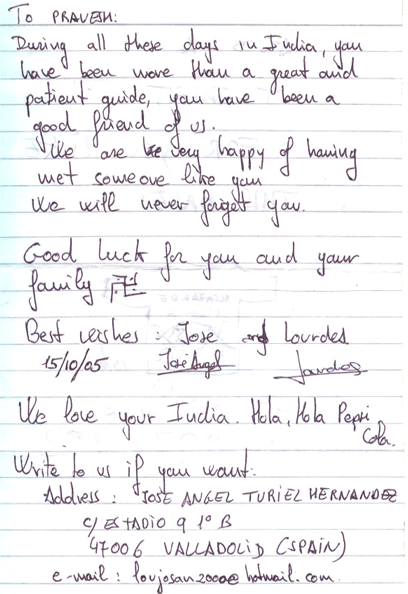 To PRAVESH:
During all these days in India, you
have been more than a great and
patient guide, you have been a
good friend of us.
We are very happy of having
met someone like you
We will never forget you.
Good luck for you and your
family 卍
Best wishes: Jose and Lourdes
15/10/05 José Angel Lourdes
We love your India. Hola, Hola Pepsi
Cola.
Write to us if you want:
Address: JOSE ANGEL TURIEL HERNANDEZ
C/ ESTADIO 9 1º B
47006 VALLADOLID (SPAIN)
e-mail: loujosan2000@hotmail.com.